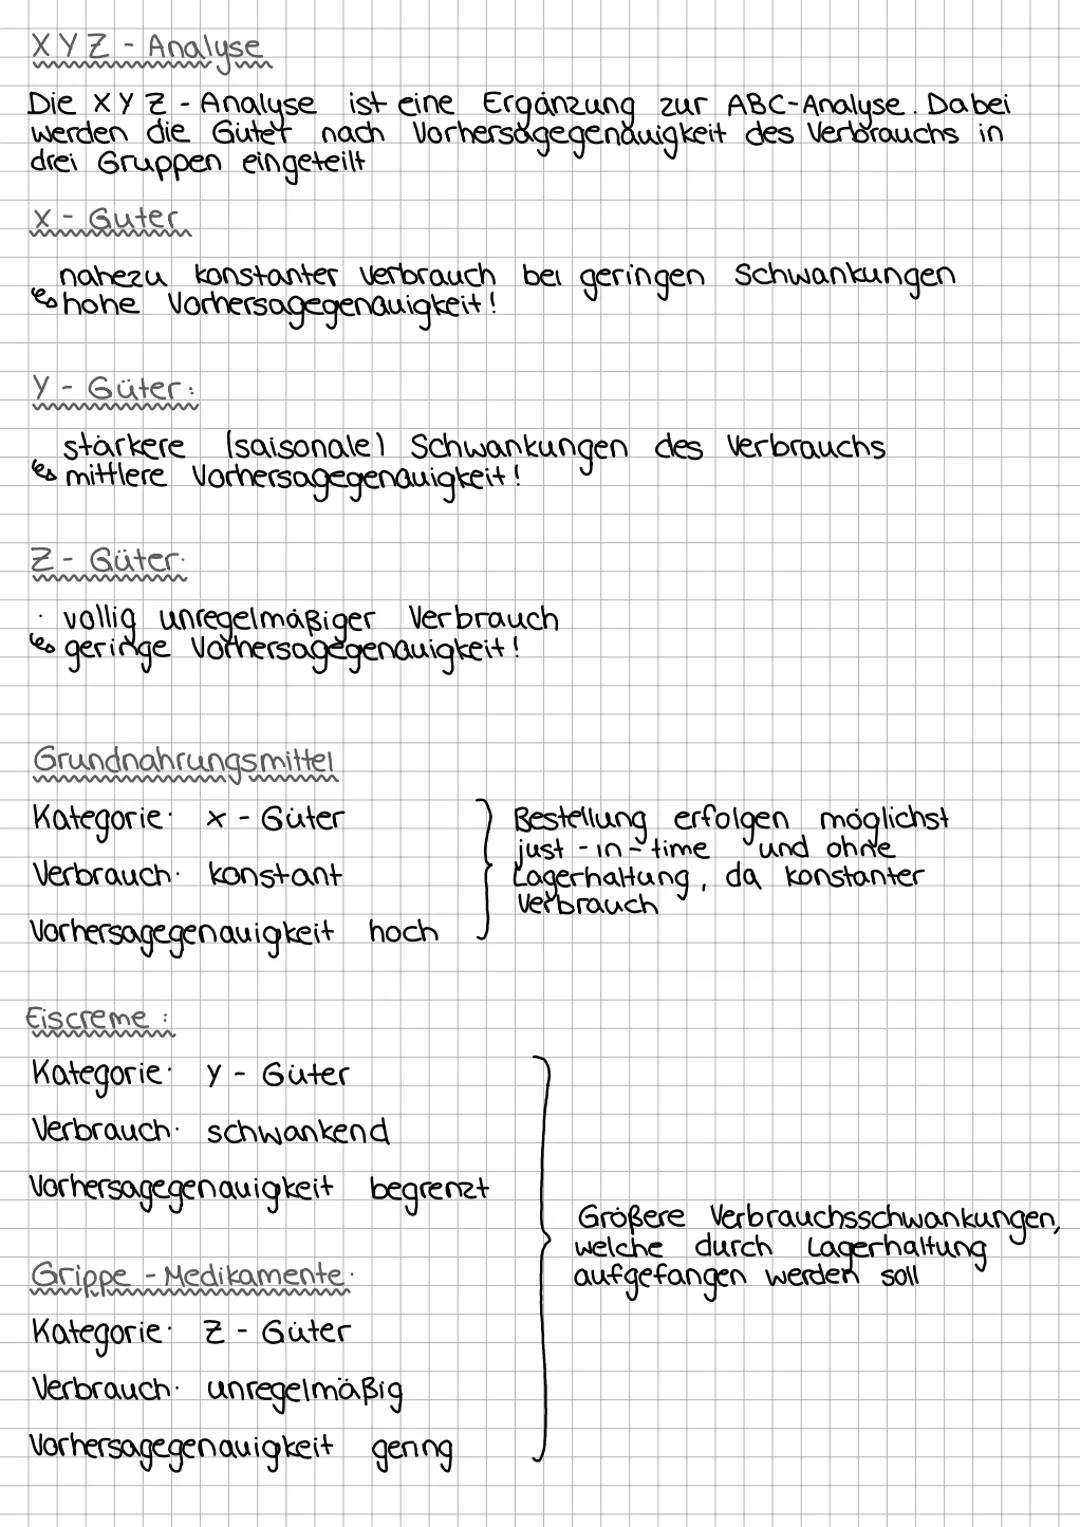 XYZ - Analyse
Die XYZ - Analyse ist eine Ergänzung zur ABC-Analyse. Dabei
werden die Güter nach Vorhersagegenauigkeit des Verbrauchs in
drei Gruppen eingeteilt
X - Güter
nahezu konstanter Verbrauch bei geringen Schwankungen
↳ hohe Vorhersagegenauigkeit!
Y - Güter:
stärkere (saisonale) Schwankungen des Verbrauchs
↳ mittlere Vorhersagegenauigkeit!
Z - Güter:
· völlig unregelmäßiger Verbrauch
↳ geringe Vorhersagegenauigkeit!
Grundnahrungsmittel
Kategorie: X - Güter
Verbrauch: konstant
Vorhersagegenauigkeit hoch
Bestellung erfolgen möglichst
just - in - time und ohne
Lagerhaltung, da konstanter
Verbrauch
Eiscreme:
Kategorie: Y - Güter
Verbrauch: schwankend
Vorhersagegenauigkeit begrenzt
Grippe - Medikamente:
Kategorie: Z - Güter
Verbrauch: unregelmäßig
Vorhersagegenauigkeit gering
Größere Verbrauchsschwankungen,
welche durch Lagerhaltung
aufgefangen werden soll